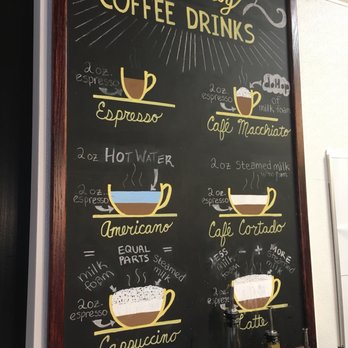 COFFEE DRINKS
2 oz.
espresso
Espresso
2 oz.
espresso
dollop
of
milk foam
Café Macchiato
2 oz HOT WATER
2 oz.
espresso
Americano
2 oz steamed milk
2 oz.
espresso
Café Cortado
= EQUAL PARTS =
milk foam
steamed milk
2 oz.
espresso
Cappuccino
LESS - + MORE
milk foam
steamed milk
2 oz.
espresso
Latte